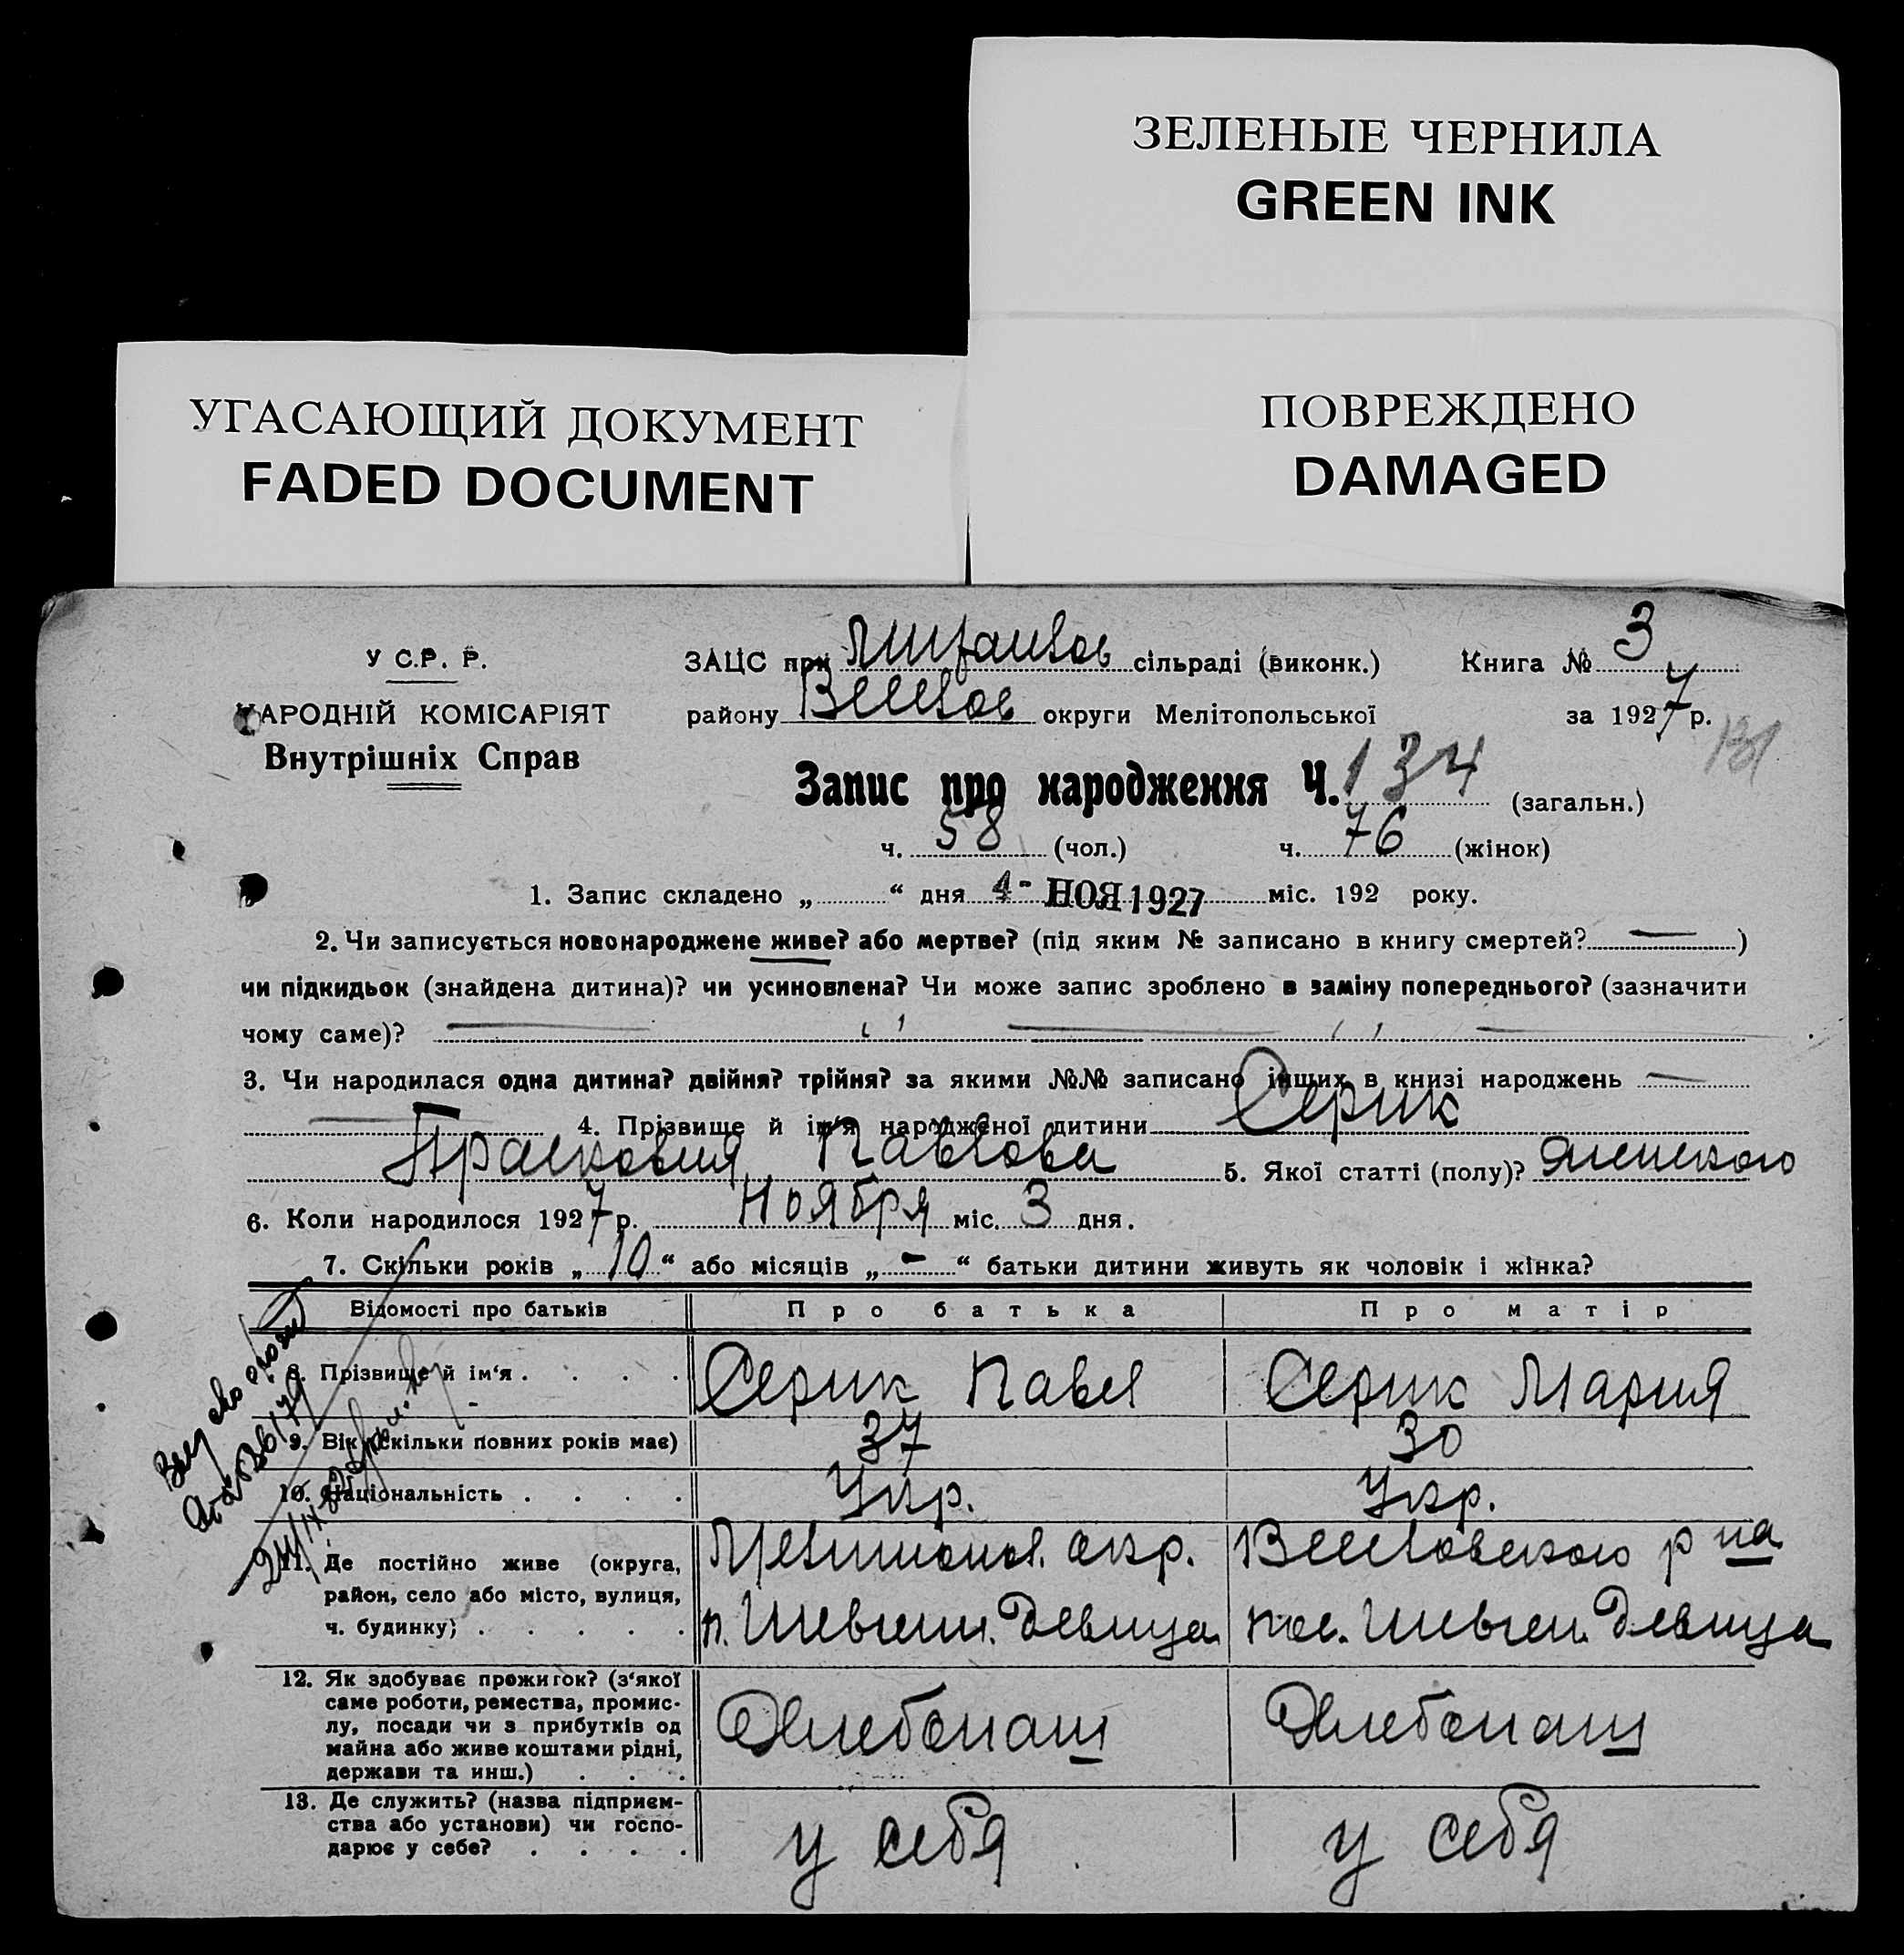 ЗЕЛЕНЫЕ ЧЕРНИЛА
GREEN INK
УГАСАЮЩИЙ ДОКУМЕНТ
FADED DOCUMENT
ПОВРЕЖДЕНО
DAMAGED
У С.Р. Р.
НАРОДНІЙ КОМІСАРІЯТ
Внутрішніх Справ
ЗАЦС при сільраді (виконк.) Книга № 3
району Веселов округи Мелітопольської за 1927 р.
131
Запис про народження Ч. 134 (загальн.)
ч. 58 (чол.) ч. 76 (жінок)
1. Запис складено „ “ дня 4- НОЯ 1927 міс. 192 року.
2. Чи записується новонароджене живе? або мертве? (під яким № записано в книгу смертей? — )
чи підкидьок (знайдена дитина)? чи усиновлена? Чи може запис зроблено в заміну попереднього? (зазначити
чому саме)? — " — " —
3. Чи народилася одна дитина? двійня? трійня? за якими №№ записано інших в книзі народжень —
— 4. Прізвище й ім‘я народженої дитини Серик
Прасковия Павлова 5. Якої статті (полу)? женского
6. Коли народилося 1927 р. Ноября міс. 3 дня.
7. Скільки років „10“ або місяців „-“ батьки дитини живуть як чоловік і жінка?
Відомості про батьків Про батька Про матір
8. Прізвище й ім‘я . . . . Серик Павел Серик Мария
9. Вік (скільки повних років має) 37 30
10. Національність . . . . Укр. Укр.
11. Де постійно живе (округа, район, село або місто, вулиця, ч. будинку) . . . . . Мелитопол. окр. Веселовского р на
п. Шевчен. Девица пос. Шевчен. Девица
12. Як здобуває прожиток? (з‘якої
саме роботи, ремества, промис-
лу, посади чи з прибутків од
майна або живе коштами рідні,
держави та инш.) . . . Хлебопаш Хлебопаш
13. Де служить? (назва підприєм-
ства або установи) чи госпо-
дарює у себе? . . . . у себя у себя